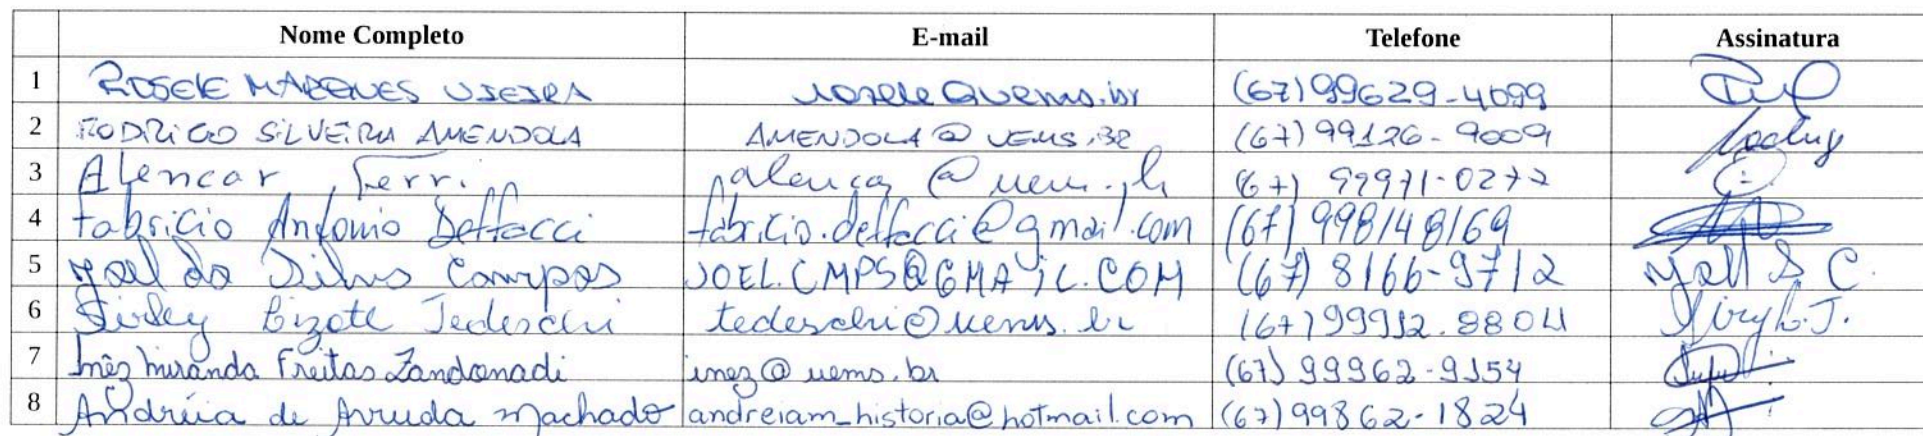 Nome Completo E-mail Telefone Assinatura
1 ROSELE MARQUES VIEIRA rosele@uems.br (67) 99629-4099
2 RODRIGO SILVEIRA AMENDOLA AMENDOLA@UEMS.BR (67) 99126-9009
3 Alencar Ferri (67) 99971-0277
4 Fabricio Antonio Deffacci fabricio.deffacci@gmail.com (67) 998148169
5 Joel da Silva Campos JOEL.CMPS@GMAIL.COM (67) 8166-9712
6 Sirley Lizott Tedeschi tedeschi@uems.br (67) 99912.8804
7 Inêz Miranda Freitas Zandonadi inez@uems.br (67) 99962-9154
8 Andréia de Arruda Machado andreiam_historia@hotmail.com (67) 99862-1824